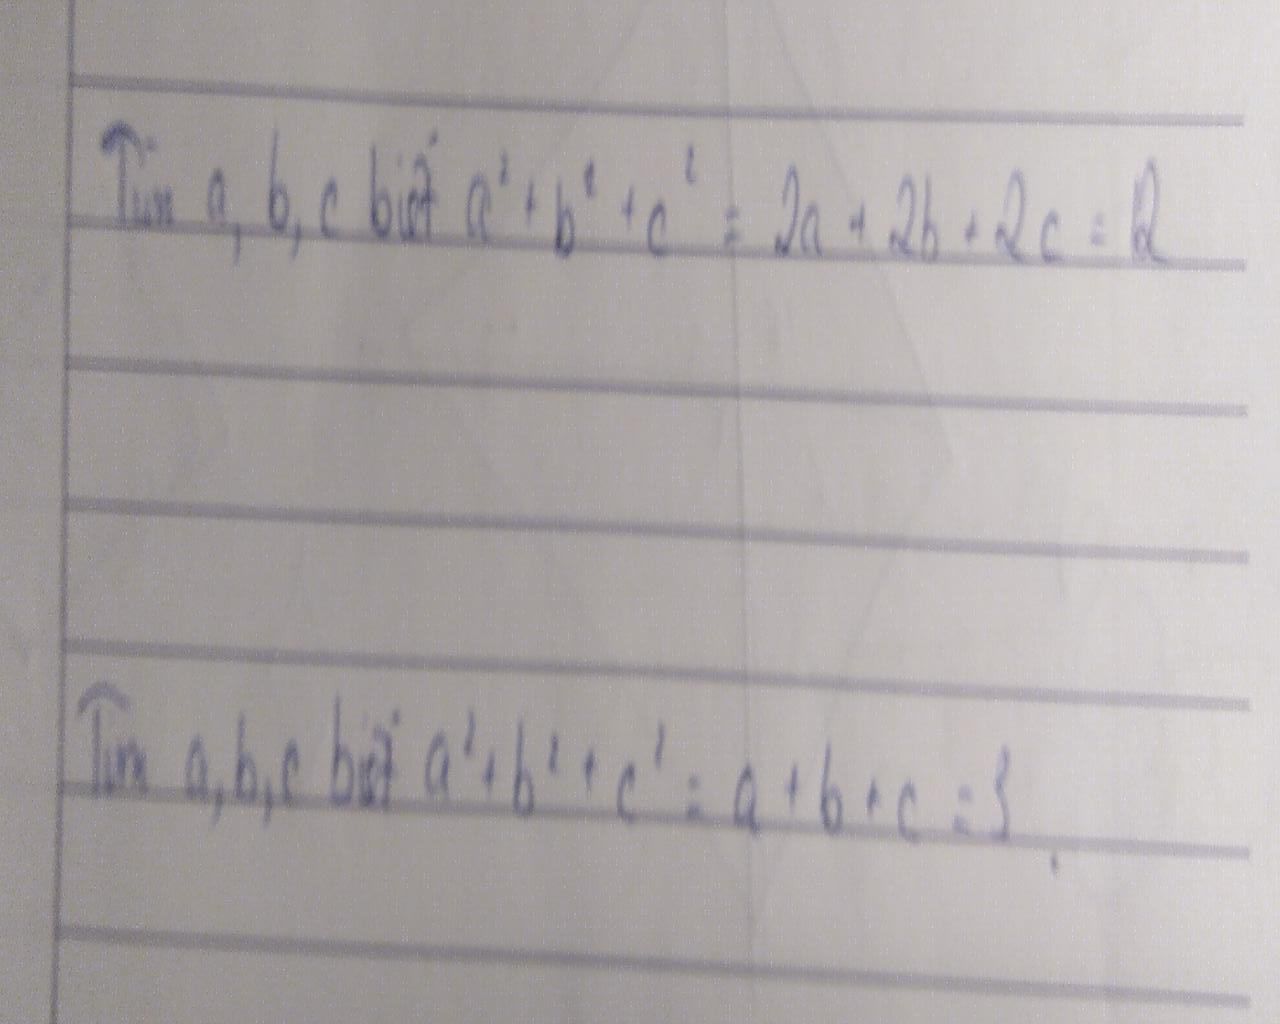 Tìm a, b, c biết a² + b² + c² = 2a + 2b + 2c = 12
Tìm a, b, c biết a² + b² + c² = a + b + c = 3